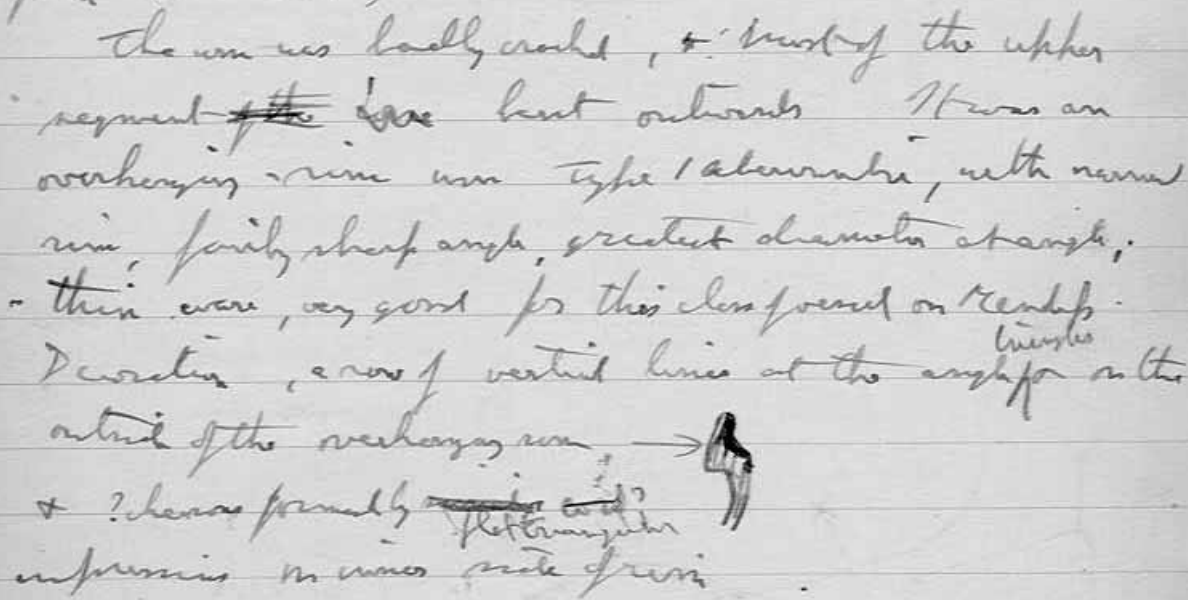 The urn was badly cracked, + most of the upper
segment of the bent outwards It was an
overhanging-rim urn type 1 Abercromby, with narrow
rim, fairly sharp angle, greatest diameter at angle,
thin ware, very good for this class of vessel on Mendip.
Decoration, a row of vertical lines at the angle on the
outside of the overhanging rim, →
+ ? formed by
flat triangular
impressions on inner side of rim